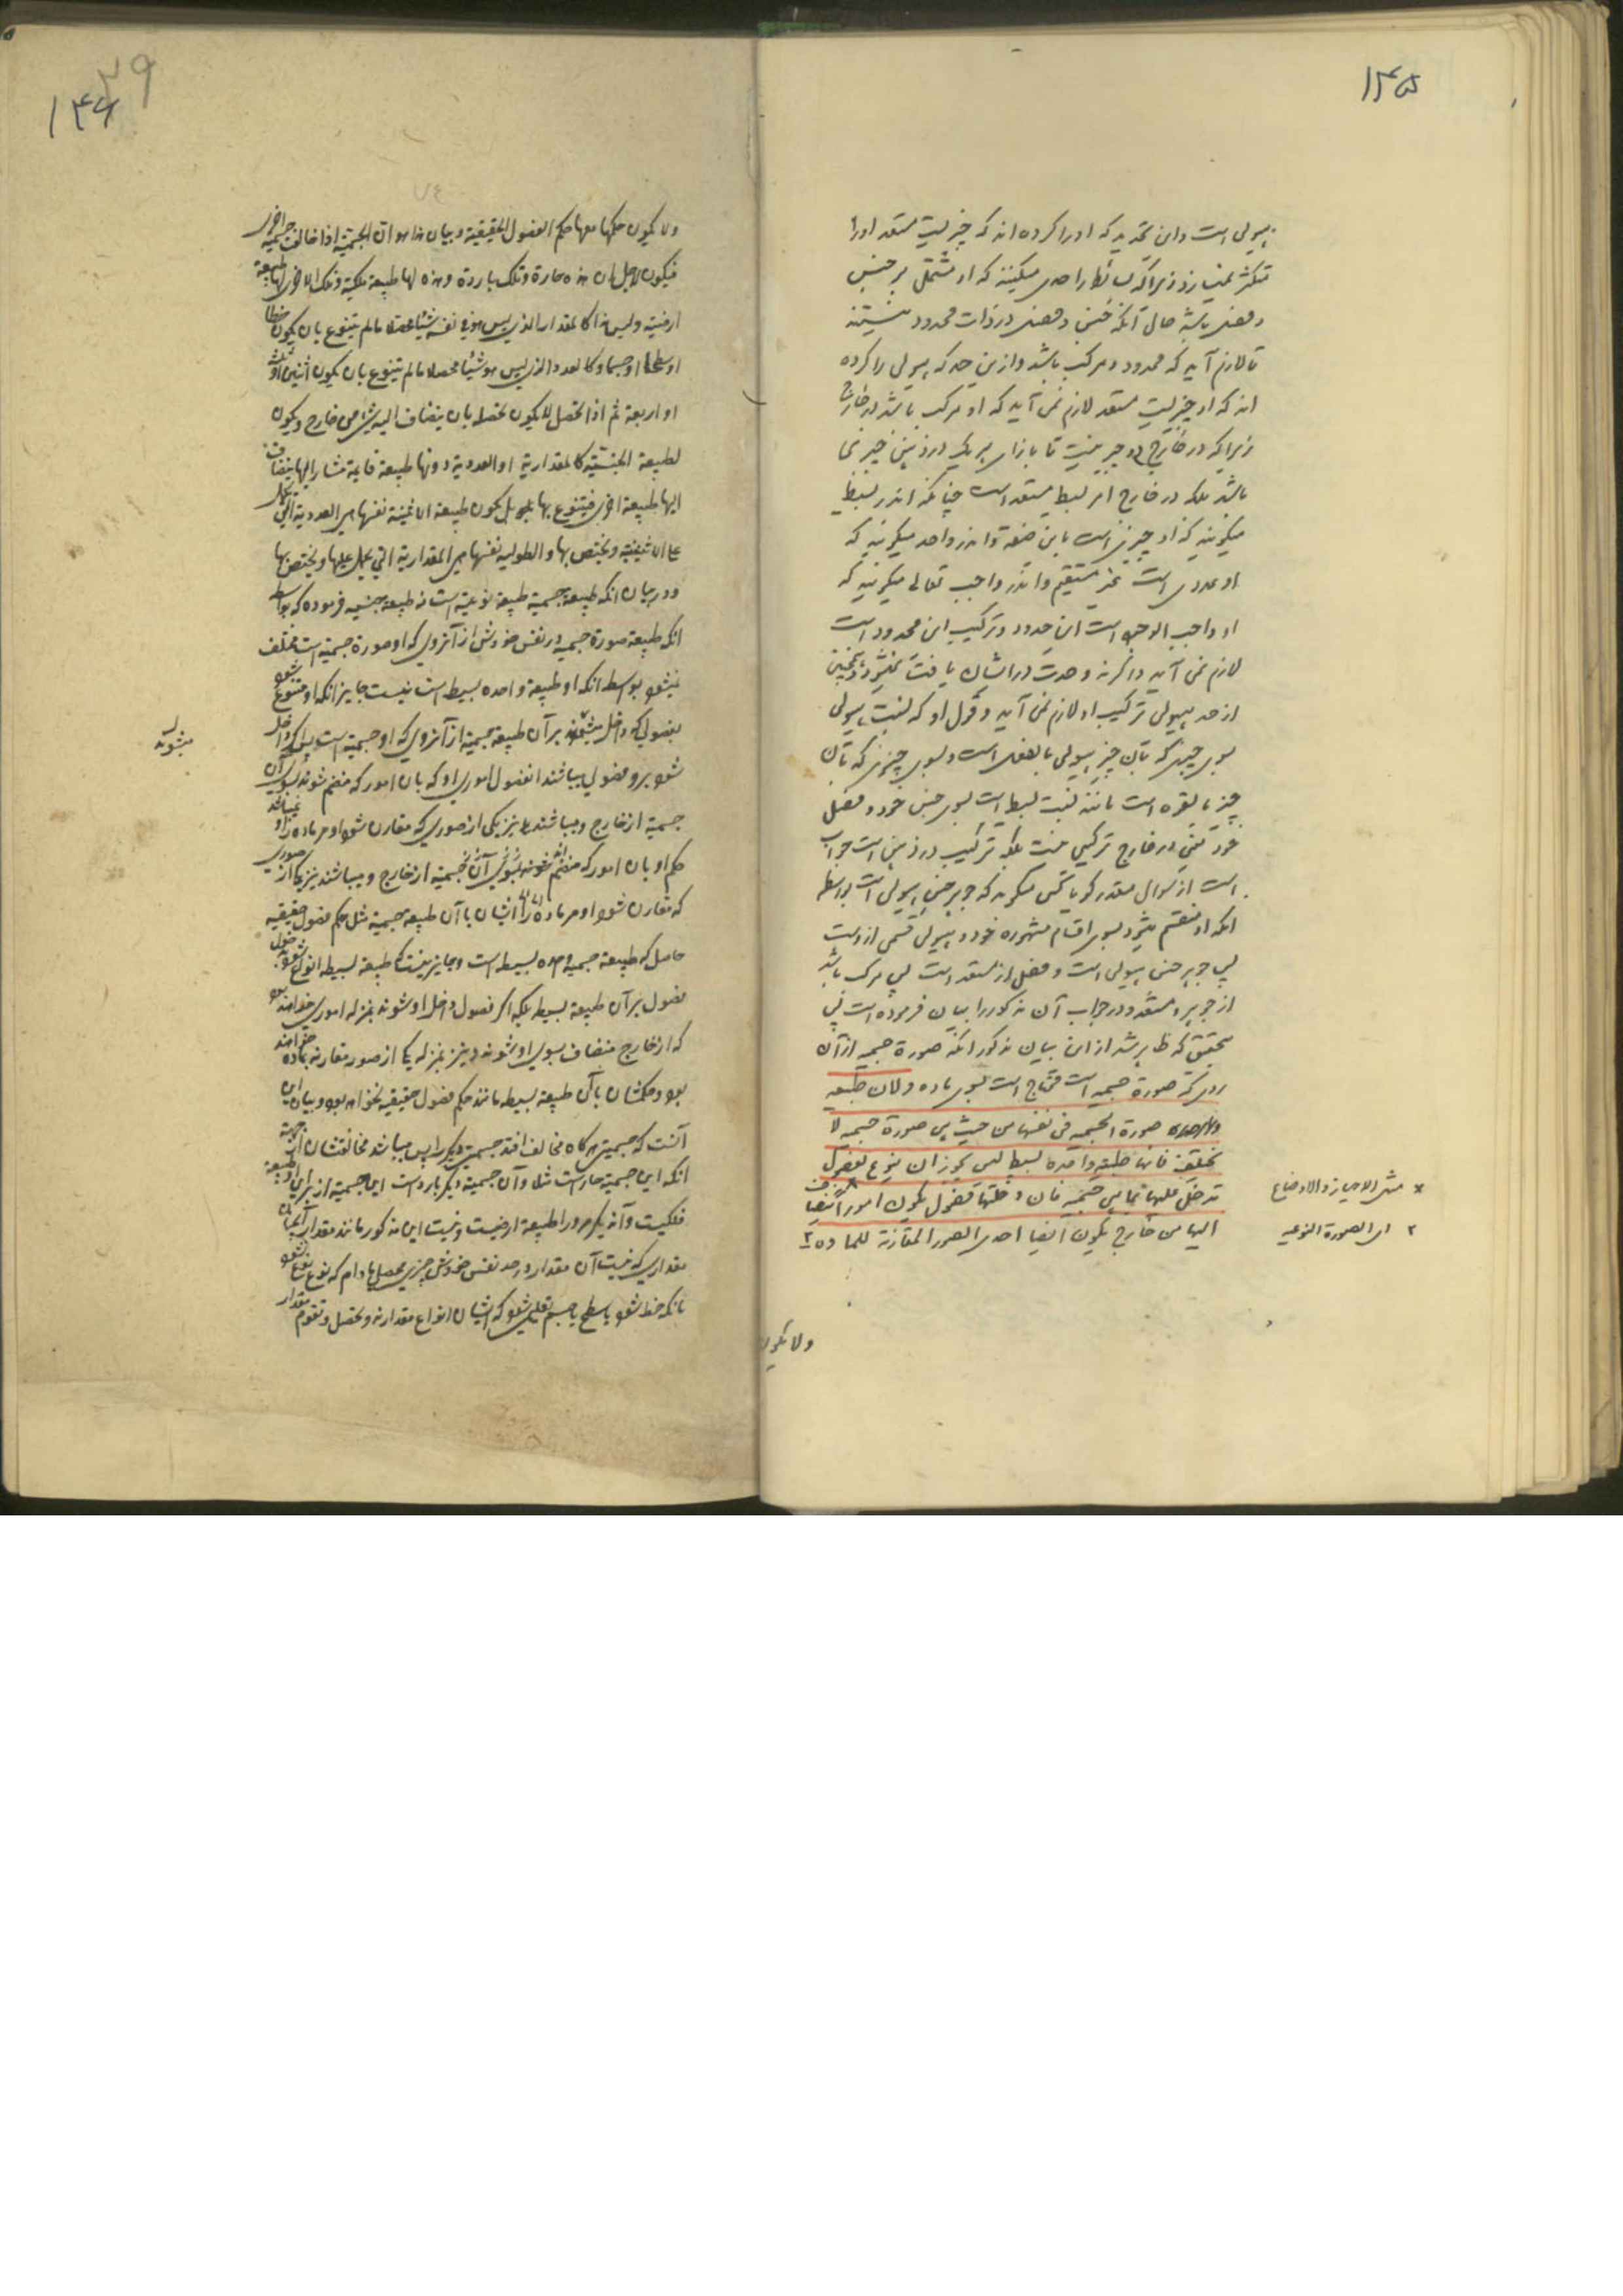 ۱۴۵
هیولی است و این تحدید که او را کرده اند که چیزیست مستعد او را
متکثر نمیسازد زیرا که بسائط را حدی میکنند که او مشتمل بر جنس
و فصل باشد حال آنکه جنس و فصل در ذات محدود نیستند
تا لازم آید که محدود مرکب باشد و از این حد که هیولی را کرده
اند که او چیزیست مستعد لازم نمی آید که او مرکب باشد در خارج
زیرا که در خارج دو چیز نیست تا بازای هر یک در ذهن چیزی
باشد بلکه در خارج امر بسیط مستعد است چنانکه اندر بسیط
میگویند که او چیزی است باین صفة و اندر واحد میگویند که
او عددی است غیر منقسم و اندر واجب تعالی میگویند که
او واجب الوجود است این حدود و ترکیب این محدود است
لازم نمی آید و اگر نه وحدت در ایشان یافت نمیشود و همچنین
از حد هیولی ترکیب او لازم نمی آید و قول او که نسبت هیولی
بسوی چیزی که بآن چیز هیولی بالفعل است و بسوی چیزی که بآن
چیز بالقوه است مانند نسبت بسیط است بسوی جنس خود و فصل
خود یعنی در خارج ترکیبی نیست بلکه ترکیب در ذهن است جواب
است از سوال مقدر گویا کسی میگوید که جوهر جنس هیولی است بواسطه
آنکه او منقسم میشود بسوی اقسام مشهوره خود و هیولی قسمی از وست
پس جوهر جنس هیولی است و فصل از مستعد است پس مرکب باشد
از جوهر و مستعد و در جواب آن مذکور را بیان فرموده است پس
محقق که ظاهر شد از این بیان مذکور آنکه صورة جسمیه از آن
روی که صورة جسمیه است محتاج است بسوی ماده و لان طبیعه
صورة الجسمیه فی نفسها من حیث هی صورة جسمیه لا
تختلف فانها طبیعة واحدة بسیطة لیس یجوز ان یتنوع بفصول
تدخل علیها بما هی جسمیه فان دخلتها فصول یکون امورا تنضاف
الیها من خارج یکون ایضا احدی الصور المقارنة للمادة ۲
* مثل الاحیاز و الاوضاع
۲ ای الصورة النوعیه
ولا یکون
۳۹
۱۴۶
۷۴
ولا یکون حکمها معها حکم الفصول الحقیقیة و بیان هذا هو ان الجسمیة اذا خالفت جسمیة اخری
فیکون لاجل ان هذه حارة و تلک باردة و هذه لها طبیعة فلکیة و تلک الاخری لها طبیعة
ارضیة و لیس هذا کالمقدار الذی لیس هو فی نفسه شیئا محصلا ما لم یتنوع بان یکون خطا
او سطحا او جسما و کالعدد الذی لیس هو شیئا محصلا ما لم یتنوع بان یکون اثنین او ثلثة
او اربعة ثم اذا تحصل لا یکون تحصله بان ینضاف الیه شیء من خارج و یکون
لطبیعة الجنسیة کالمقداریة او العددیة دونها طبیعة قایمة مشار الیها ینضاف
الیها طبیعة اخری فیتنوع بها بل یکون طبیعة الاثنینیة نفسها هی العددیة التی تحمل
علی الاثنینیة و یختص بها و الطولیه نفسها هی المقداریة التی یحمل علیها و یختص بها
و در بیان آنکه طبیعة جسمیة طبیعة نوعیة است نه طبیعة جنسیه فرموده که بواسطه
آنکه طبیعة صورة جسمیه در نفس خودش از آنروی که او صورة جسمیة است مختلف
نمیشود بواسطه آنکه او طبیعة واحده بسیطه است نیست جایز آنکه او متنوع شود
بفصولی که داخل میشوند بر آن طبیعة جسمیة از آنروی که او جسمیة است پس اگر داخل
میشوند
شود برو فصولی میباشند آنفصول اموری او که بان امور که منضم شوند بسوی آن
جسمیة از خارج و میباشند نیز یکی از صوری که مقارن شود او مر ماده را و نمیباشد
حکم او بان امور که منضم شوند بسوی آن جسمیة از خارج و میباشند نیز یکی از صوری
که مقارن شود او مر ماده را ایشان با آن طبیعة جسمیة مثل حکم فصول حقیقیه
حاصل که طبیعة جسمیه واحده بسیطه است و جایز نیست که طبیعة بسیطه انواع شود بدخول
فصول بر آن طبیعة بسیطه بلکه اگر فصول داخل او شوند بمنزله اموری خواهند بود
که از خارج منضاف بسوی او شوند و نیز بمنزله یکی از صور مقارنه بماده خواهند
بود و حکمشان با آن طبیعة بسیطه مانند حکم فصول حقیقیه نخواهد بود و بیان این
آنست که جسمیتی هرگاه مخالف افتد جسمیتی دیگر را پس میباشد مخالفتشان از جهة
آنکه این جسمیة حار است مثلا و آن جسمیة دیگر بارد است این جسمیة از برای او طبیعة
فلکیست و آن دیگر مر او را طبیعة ارضیست و نیست این مذکور مانند مقدار آنچنان
مقداری که نیست آن مقدار در حد نفس خودش چیزی محصل مادام که نوع نوع نشود
بانکه خط شود یا سطح یا جسم تعلیمی شود که ایشان انواع مقدارند و تحصل و تقوم مقدار